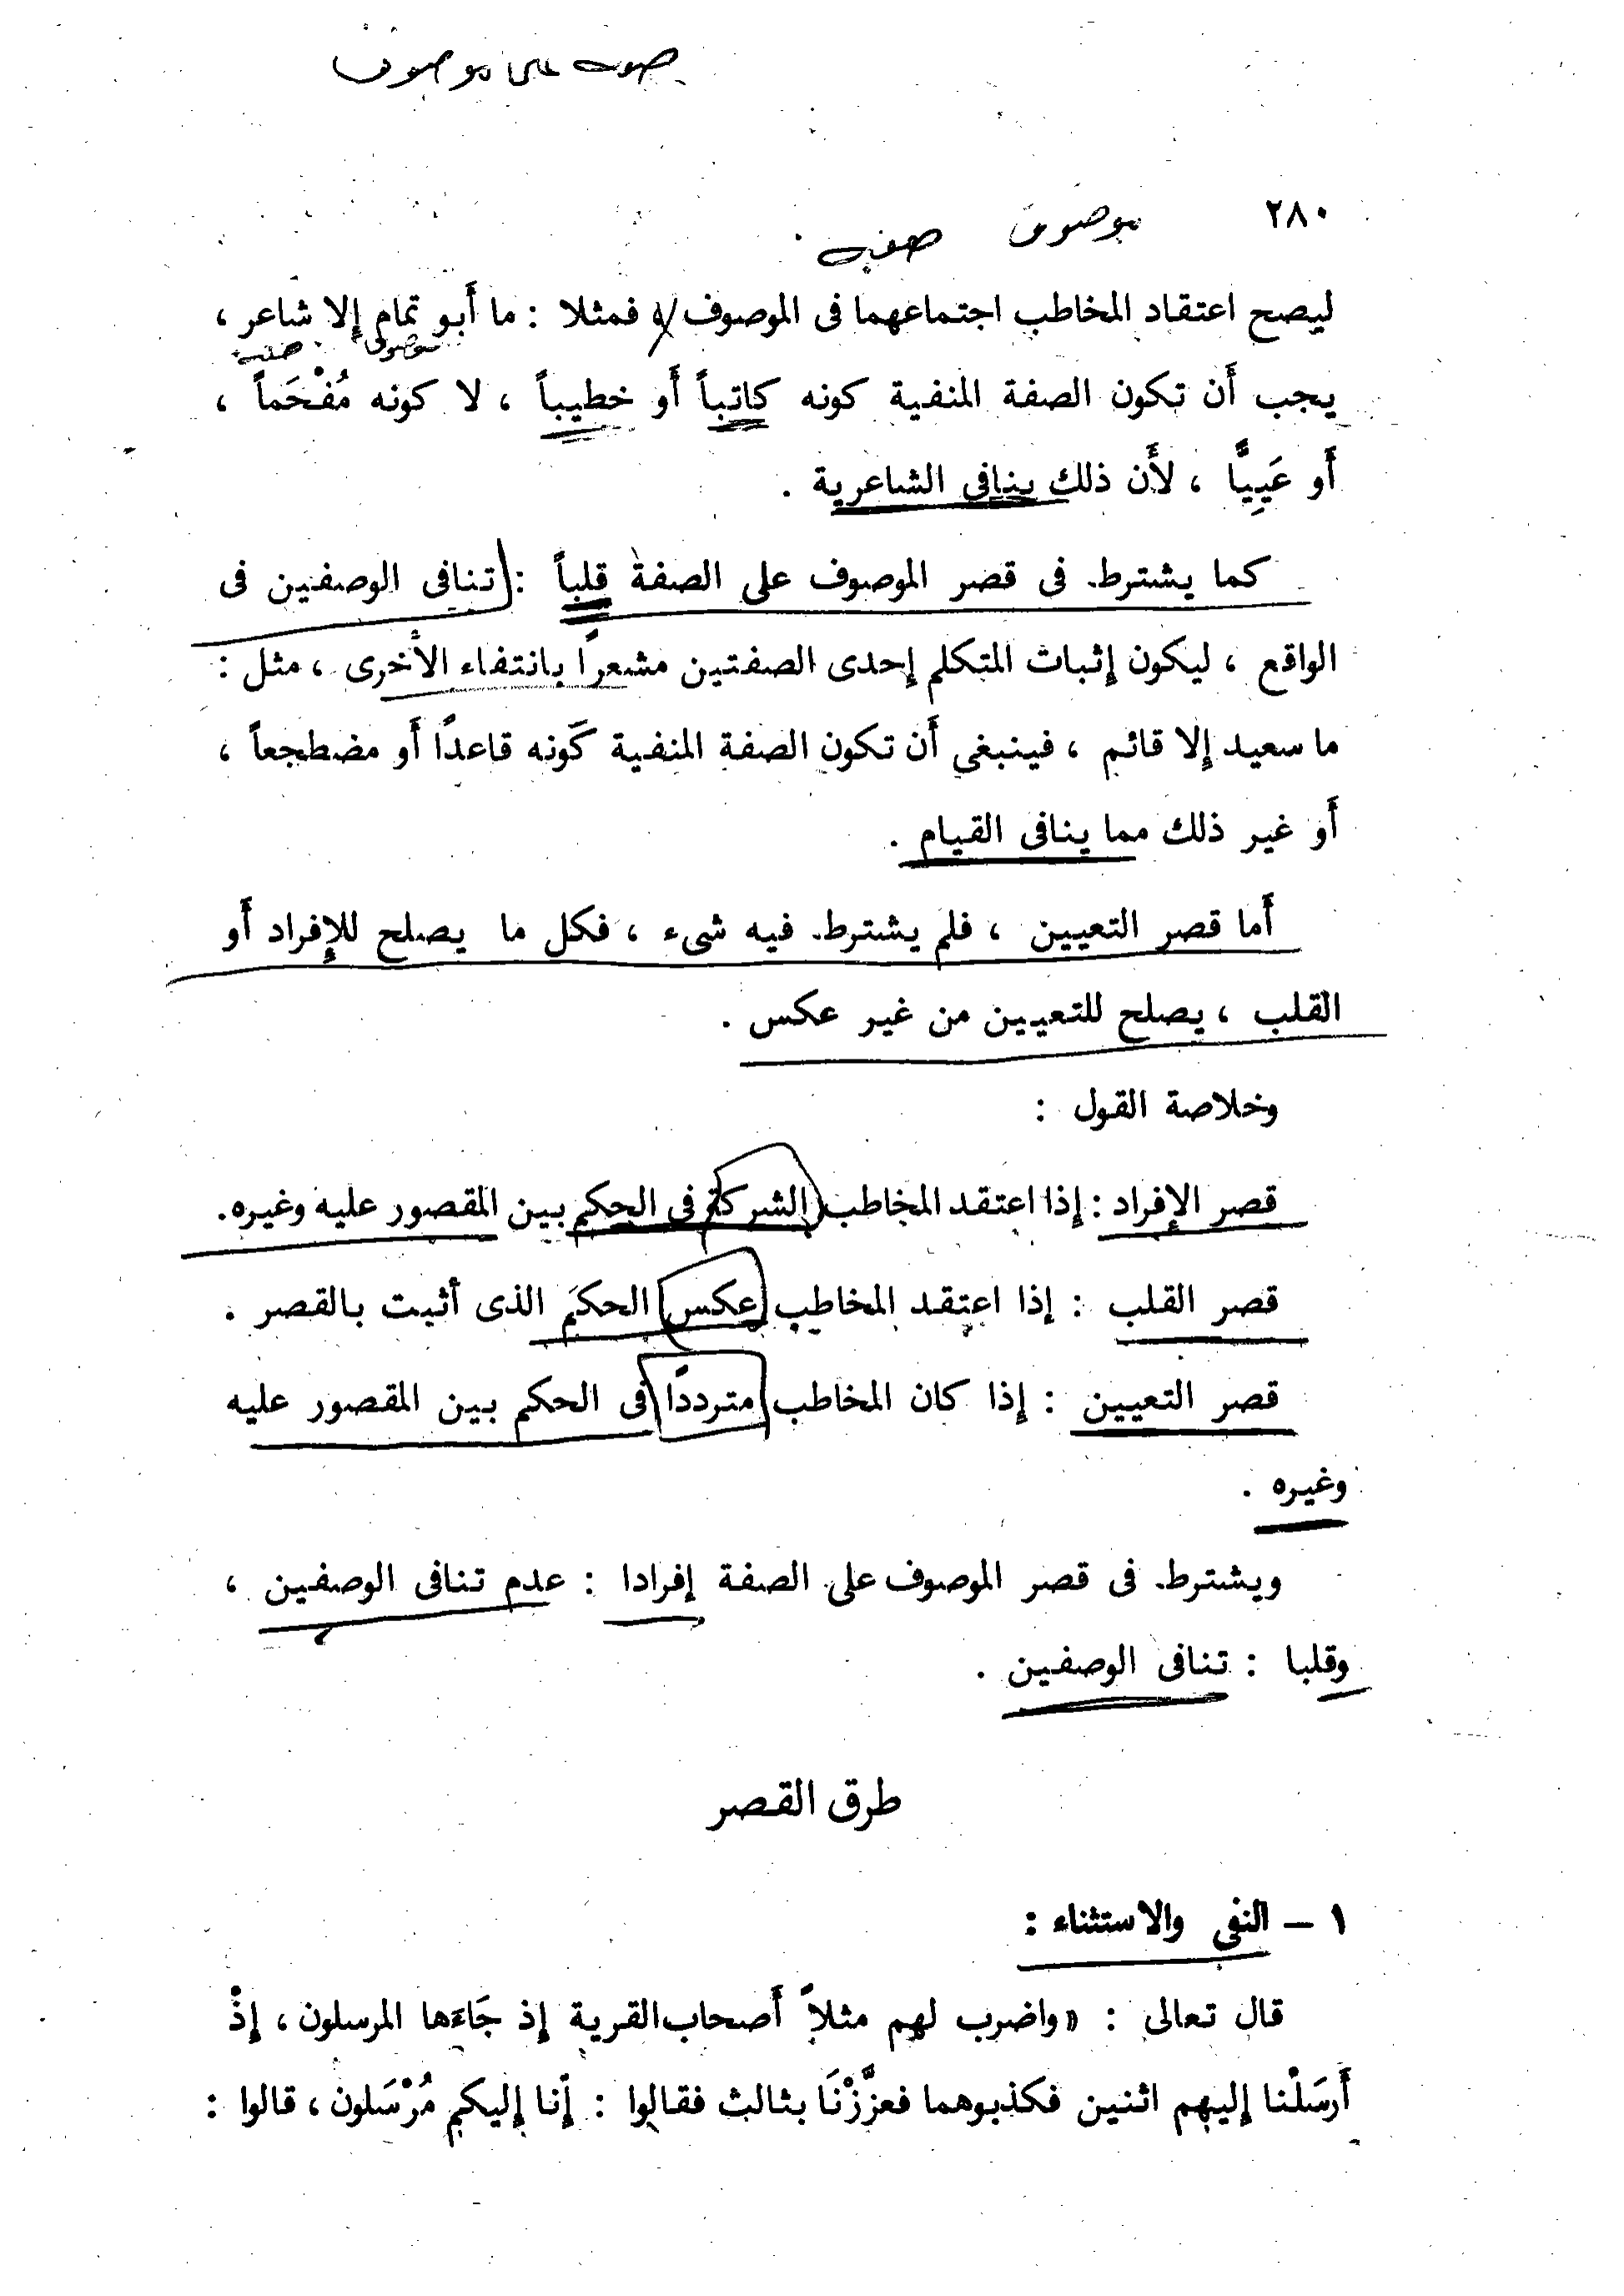 صفة على موصوف
٢٨٠
موصوف صفة
ليصح اعتقاد المخاطب اجتماعهما فى الموصوف ، فمثلا : ما أَبو تمام إِلا شاعر ،
موصوف صفة
يجب أَن تكون الصفة المنفية كونه كاتباً أَو خطيباً ، لا كونه مُفْحَماً ،
أَو عَيِيًّا ، لأَن ذلك ينافى الشاعرية .
كما يشترط فى قصر الموصوف على الصفة قلباً : تنافى الوصفين فى
الواقع ، ليكون إِثبات المتكلم إِحدى الصفتين مشعرًا بانتفاء الأُخرى ، مثل :
ما سعيد إِلا قائم ، فينبغى أَن تكون الصفة المنفية كَونه قاعدًا أَو مضطجعاً ،
أَو غير ذلك مما ينافى القيام .
أَما قصر التعيين ، فلم يشترط فيه شىء ، فكل ما يصلح للإِفراد أَو
القلب ، يصلح للتعيين من غير عكس .
وخلاصة القول :
قصر الإِفراد : إِذا اعتقد المخاطب الشركة فى الحكم بين المقصور عليه وغيره .
قصر القلب : إِذا اعتقد المخاطب عكس الحكم الذى أثبت بالقصر .
قصر التعيين : إِذا كان المخاطب مترددًا فى الحكم بين المقصور عليه
وغيره .
ويشترط فى قصر الموصوف على الصفة إِفرادا : عدم تنافى الوصفين ،
وقلبا : تنافى الوصفين .
طرق القصر
١ – النفى والاستثناء :
قال تعالى : «واضرب لهم مثلاً أَصحاب القرية إِذ جَاءَها المرسلون ، إِذْ
أَرسَلْنا إِليهم اثنين فكذبوهما فعزَّزْنَا بثالث فقالوا : إِنا إِليكم مُرْسَلون ، قالوا :